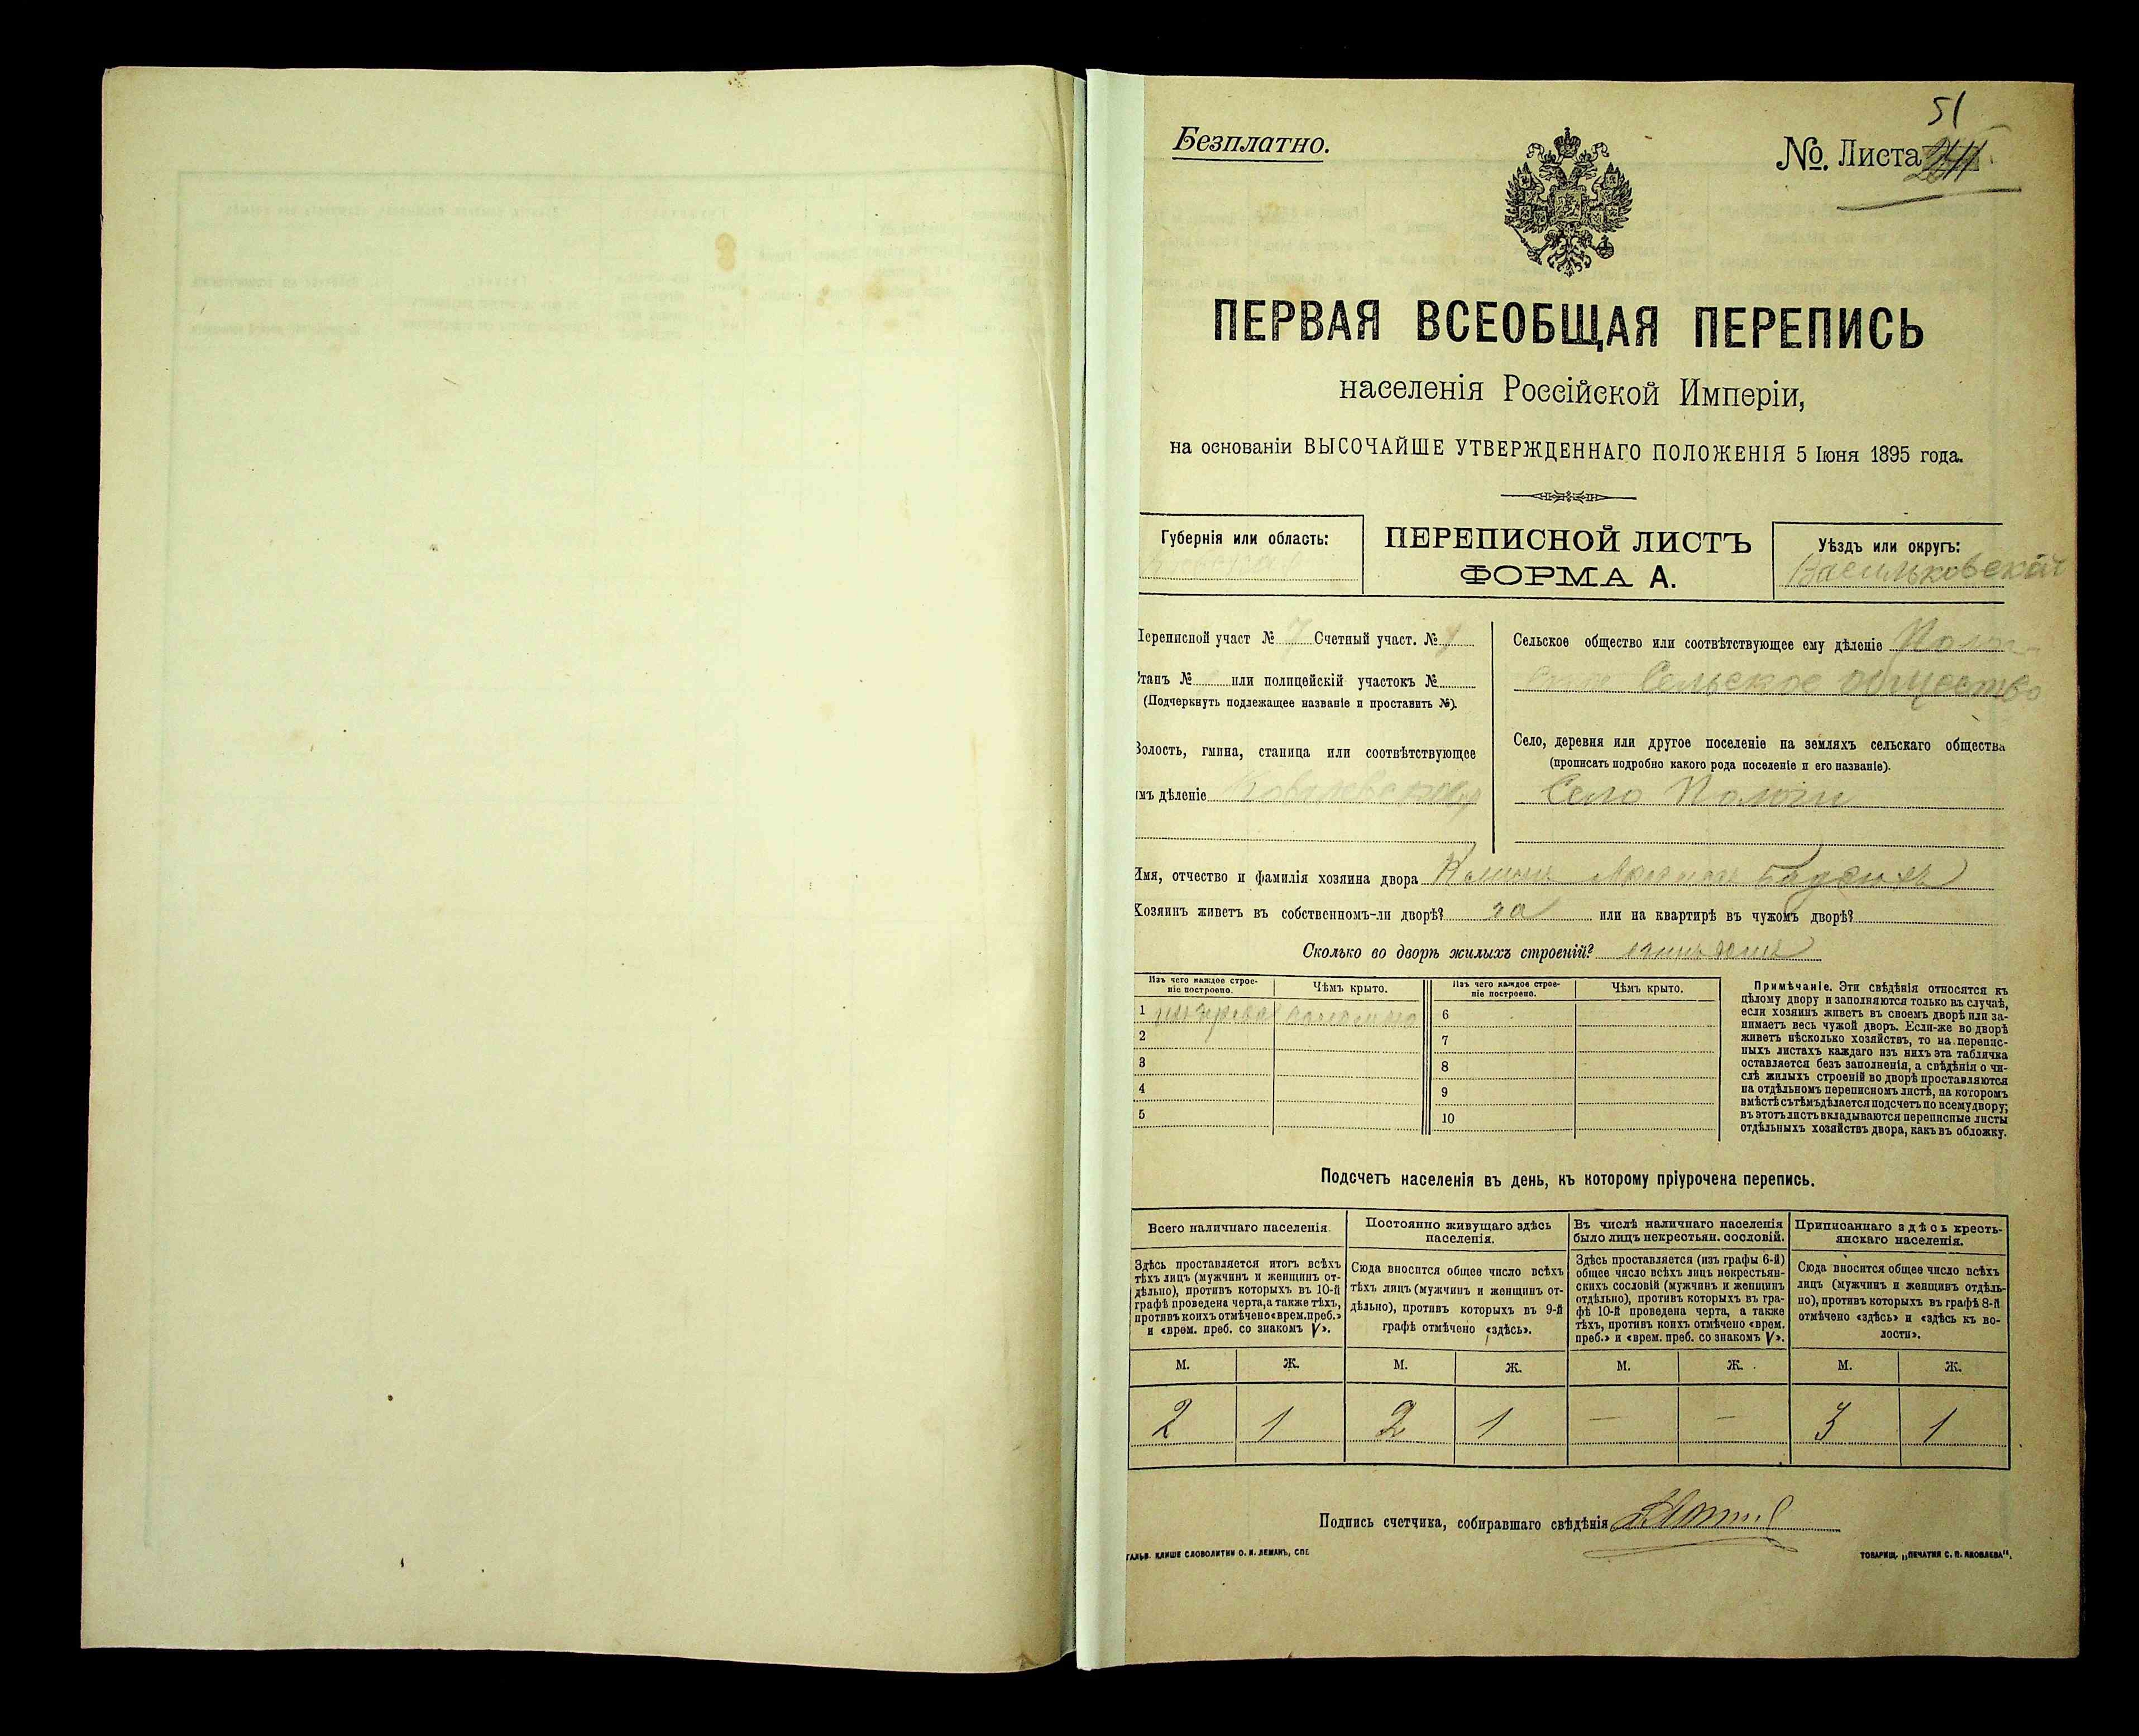 51
Безплатно.
№. Листа
ПЕРВАЯ ВСЕОБЩАЯ ПЕРЕПИСЬ
населенія Россійской Имперіи,
на основаніи ВЫСОЧАЙШЕ УТВЕРЖДЕННАГО ПОЛОЖЕНІЯ 5 Іюня 1895 года.
Губернія или область:
ПЕРЕПИСНОЙ ЛИСТЪ
ФОРМА А.
Уѣздъ или округъ:
Васильковскій
Переписной участ № 7 Счетный участ. №
Станъ № или полицейскій участокъ №
(Подчеркнуть подлежащее названіе и проставить №).
Волость, гмина, станица или соотвѣтствующее
имъ дѣленіе
Сельское общество или соотвѣтствующее ему дѣленіе
Сельское общество
Село, деревня или другое поселеніе на земляхъ сельскаго общества
(прописать подробно какого рода поселеніе и его названіе).
Село
Имя, отчество и фамилія хозяина двора
Хозяинъ живетъ въ собственномъ-ли дворѣ? или на квартирѣ въ чужомъ дворѣ?
Сколько во дворѣ жилыхъ строеній?
Изъ чего каждое строе-
ніе построено.
Чѣмъ крыто.
1
2
3
4
5
Изъ чего каждое строе-
ніе построено.
Чѣмъ крыто.
6
7
8
9
10
Примѣчаніе. Эти свѣдѣнія относятся къ
цѣлому двору и заполняются только въ случаѣ,
если хозяинъ живетъ въ своемъ дворѣ или за-
нимаетъ весь чужой дворъ. Если-же во дворѣ
живетъ нѣсколько хозяйствъ, то на перепис-
ныхъ листахъ каждаго изъ нихъ эта табличка
оставляется безъ заполненія, а свѣдѣнія о чи-
слѣ жилыхъ строеній во дворѣ проставляются
на отдѣльномъ переписномъ листѣ, на которомъ
вмѣстѣ съ тѣмъ дѣлается подсчетъ по всему двору;
въ этотъ листъ вкладываются переписные листы
отдѣльныхъ хозяйствъ двора, какъ въ обложку.
Подсчетъ населенія въ день, къ которому пріурочена перепись.
Всего наличнаго населенія.
Здѣсь проставляется итогъ всѣхъ
тѣхъ лицъ (мужчинъ и женщинъ от-
дѣльно), противъ которыхъ въ 10-й
графѣ проведена черта, а также тѣхъ,
противъ коихъ отмѣчено «врем. преб.»
и «врем. преб. со знакомъ V».
Постоянно живущаго здѣсь
населенія.
Сюда вносится общее число всѣхъ
тѣхъ лицъ (мужчинъ и женщинъ от-
дѣльно), противъ которыхъ въ 9-й
графѣ отмѣчено «здѣсь».
Въ числѣ наличнаго населенія
было лицъ некрестьян. сословій.
Здѣсь проставляется (изъ графы 6-й)
общее число всѣхъ лицъ некрестьян-
скихъ сословій (мужчинъ и женщинъ
отдѣльно), противъ которыхъ въ гра-
фѣ 10-й проведена черта, а также
тѣхъ, противъ коихъ отмѣчено «врем.
преб.» и «врем. преб. со знакомъ V».
Приписаннаго здѣсь кресть-
янскаго населенія.
Сюда вносится общее число всѣхъ
лицъ (мужчинъ и женщинъ отдѣль-
но), противъ которыхъ въ графѣ 8-й
отмѣчено «здѣсь» и «здѣсь къ во-
лости».
М. Ж. М. Ж. М. Ж. М. Ж.
2 1 2 1 — — 3 1
Подпись счетчика, собиравшаго свѣдѣнія
ГАЛЬВ. КЛИШЕ СЛОВОЛИТНИ О. И. ЛЕМАНЪ, СПБ
ТОВАРИЩ. „ПЕЧАТНЯ С. П. ЯКОВЛЕВА".